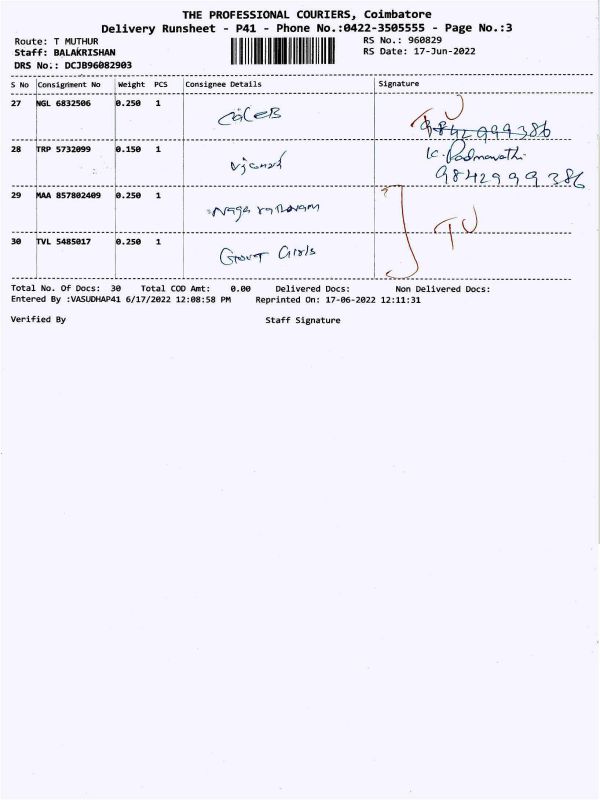 THE PROFESSIONAL COURIERS, Coimbatore
Delivery Runsheet - P41 - Phone No.:0422-3505555 - Page No.:3
Route: T MUTHUR
RS No.: 960829
Staff: BALAKRISHAN
RS Date: 17-Jun-2022
DRS No.: DCJB96082903
S No Consignment No Weight PCS Consignee Details Signature
27 NGL 6832506 0.250 1 CaleB TU
9842999386
28 TRP 5732099 0.150 1 K. Padmavathi
9842999386
29 MAA 857802409 0.250 1 TU
30 TVL 5485017 0.250 1 Govt Girls
Total No. Of Docs: 30 Total COD Amt: 0.00 Delivered Docs: Non Delivered Docs:
Entered By :VASUDHAP41 6/17/2022 12:08:58 PM Reprinted On: 17-06-2022 12:11:31
Verified By Staff Signature